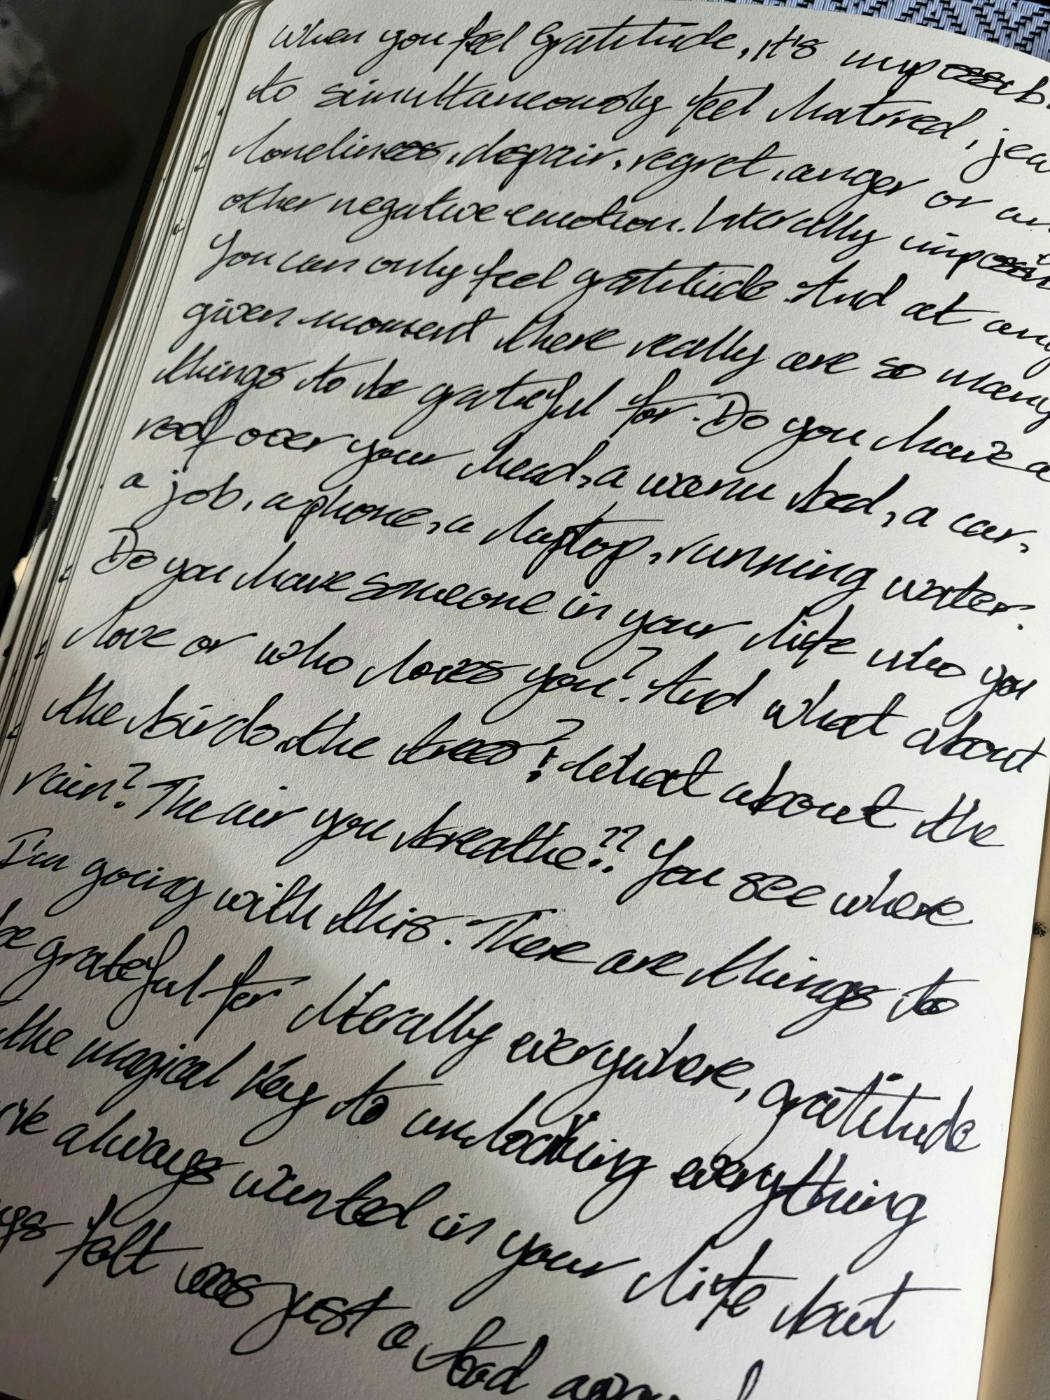 When you feel gratitude, it's impossib
to simultaneously feel hatred, jea
loneliness, despair, regret, anger or an
other negative emotion. Literally imposs
You can only feel gratitude. And at any
given moment there really are so many
things to be grateful for. Do you have a
roof over your head, a warm bed, a car,
a job, a phone, a laptop, running water?
Do you have someone in your life who you
love or who loves you? And what about
the birds, the trees? What about the
rain? The air you breathe?? You see where
I'm going with this. There are things to
be grateful for literally everywhere, gratitude
the magical key to unlocking everything
've always wanted in your life but
ys felt was just a tad